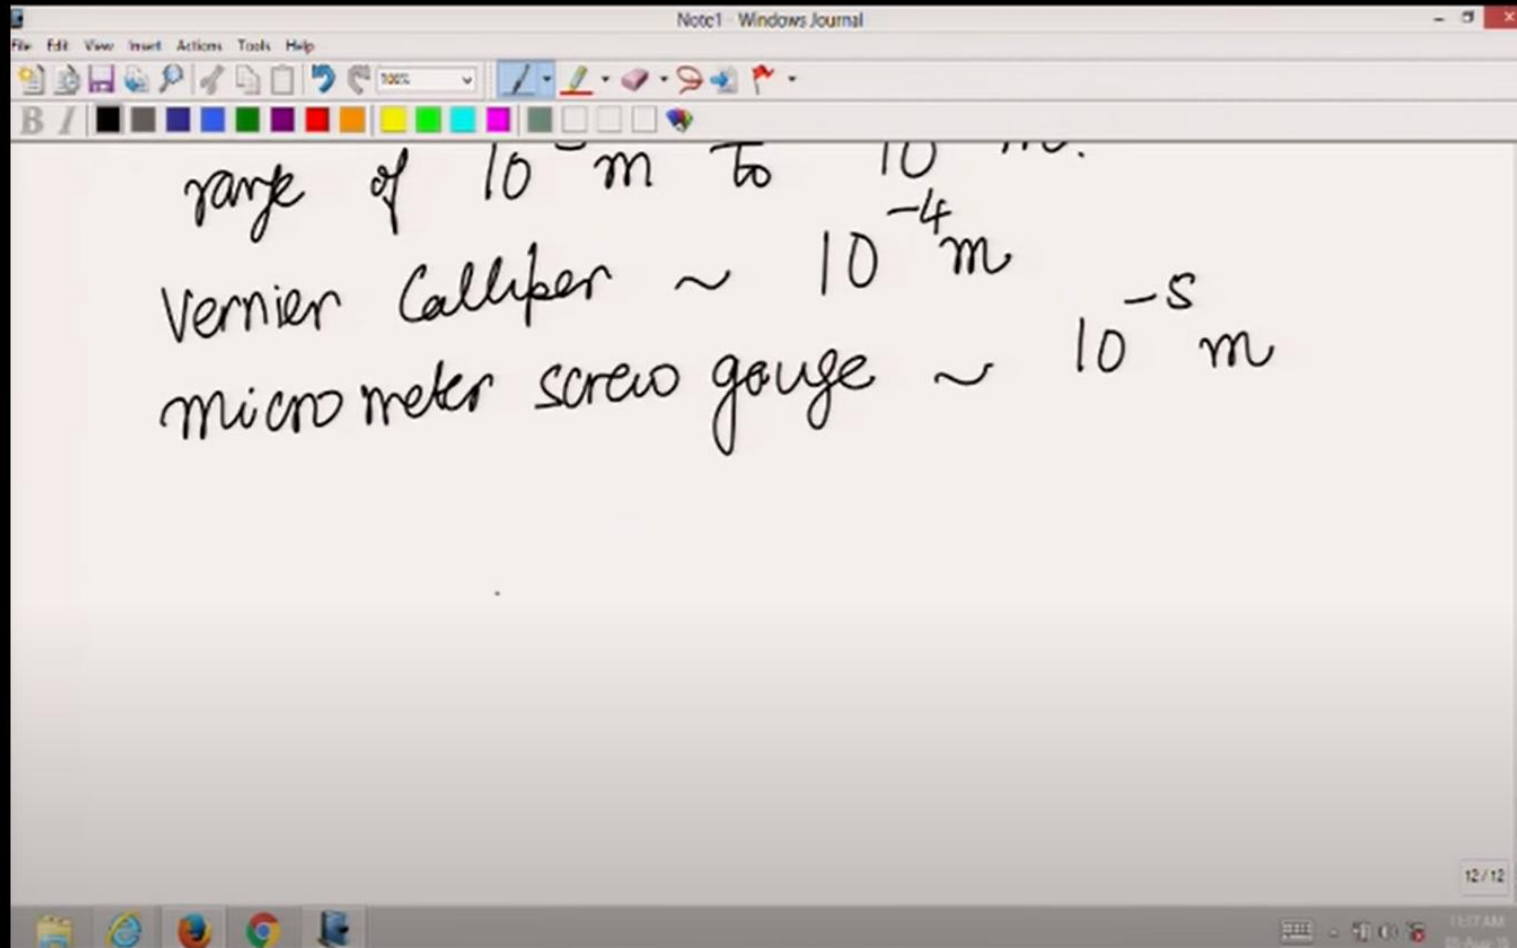 Note1 - Windows Journal
File Edit View Insert Actions Tools Help
100%
B I
range of 10 m to 10 m.
Vernier Calliper ~ 10⁻⁴ m
micrometer screw gouge ~ 10⁻⁵ m
12/12
11:17 AM